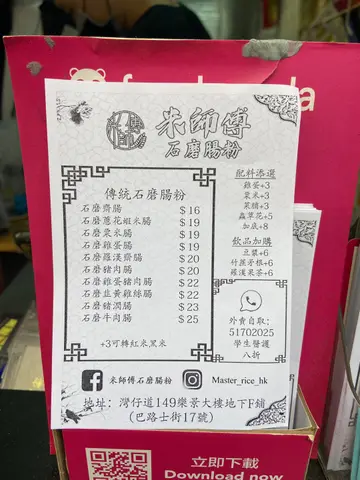 米師傅
石磨腸粉
傳統石磨腸粉
石磨齋腸 $16
石磨蔥花蝦米腸 $19
石磨粟米腸 $19
石磨雞蛋腸 $19
石磨羅漢齋腸 $20
石磨豬肉腸 $20
石磨雞蛋豬肉腸 $22
石磨韭黃雞絲腸 $22
石磨豬潤腸 $23
石磨牛肉腸 $25
+3可轉紅米黑米
配料添選
雞蛋+3
粟米+3
+3
蟲草花+5
加底+8
飲品加購
豆漿+6
竹蔗茅根+6
羅漢果茶+6
外賣自取:
51702025
學生醫護
八折
米師傅石磨腸粉
Master_rice_hk
地址: 灣仔道149樂景大樓地下F鋪
(巴路士街17號)
立即下載
Download now